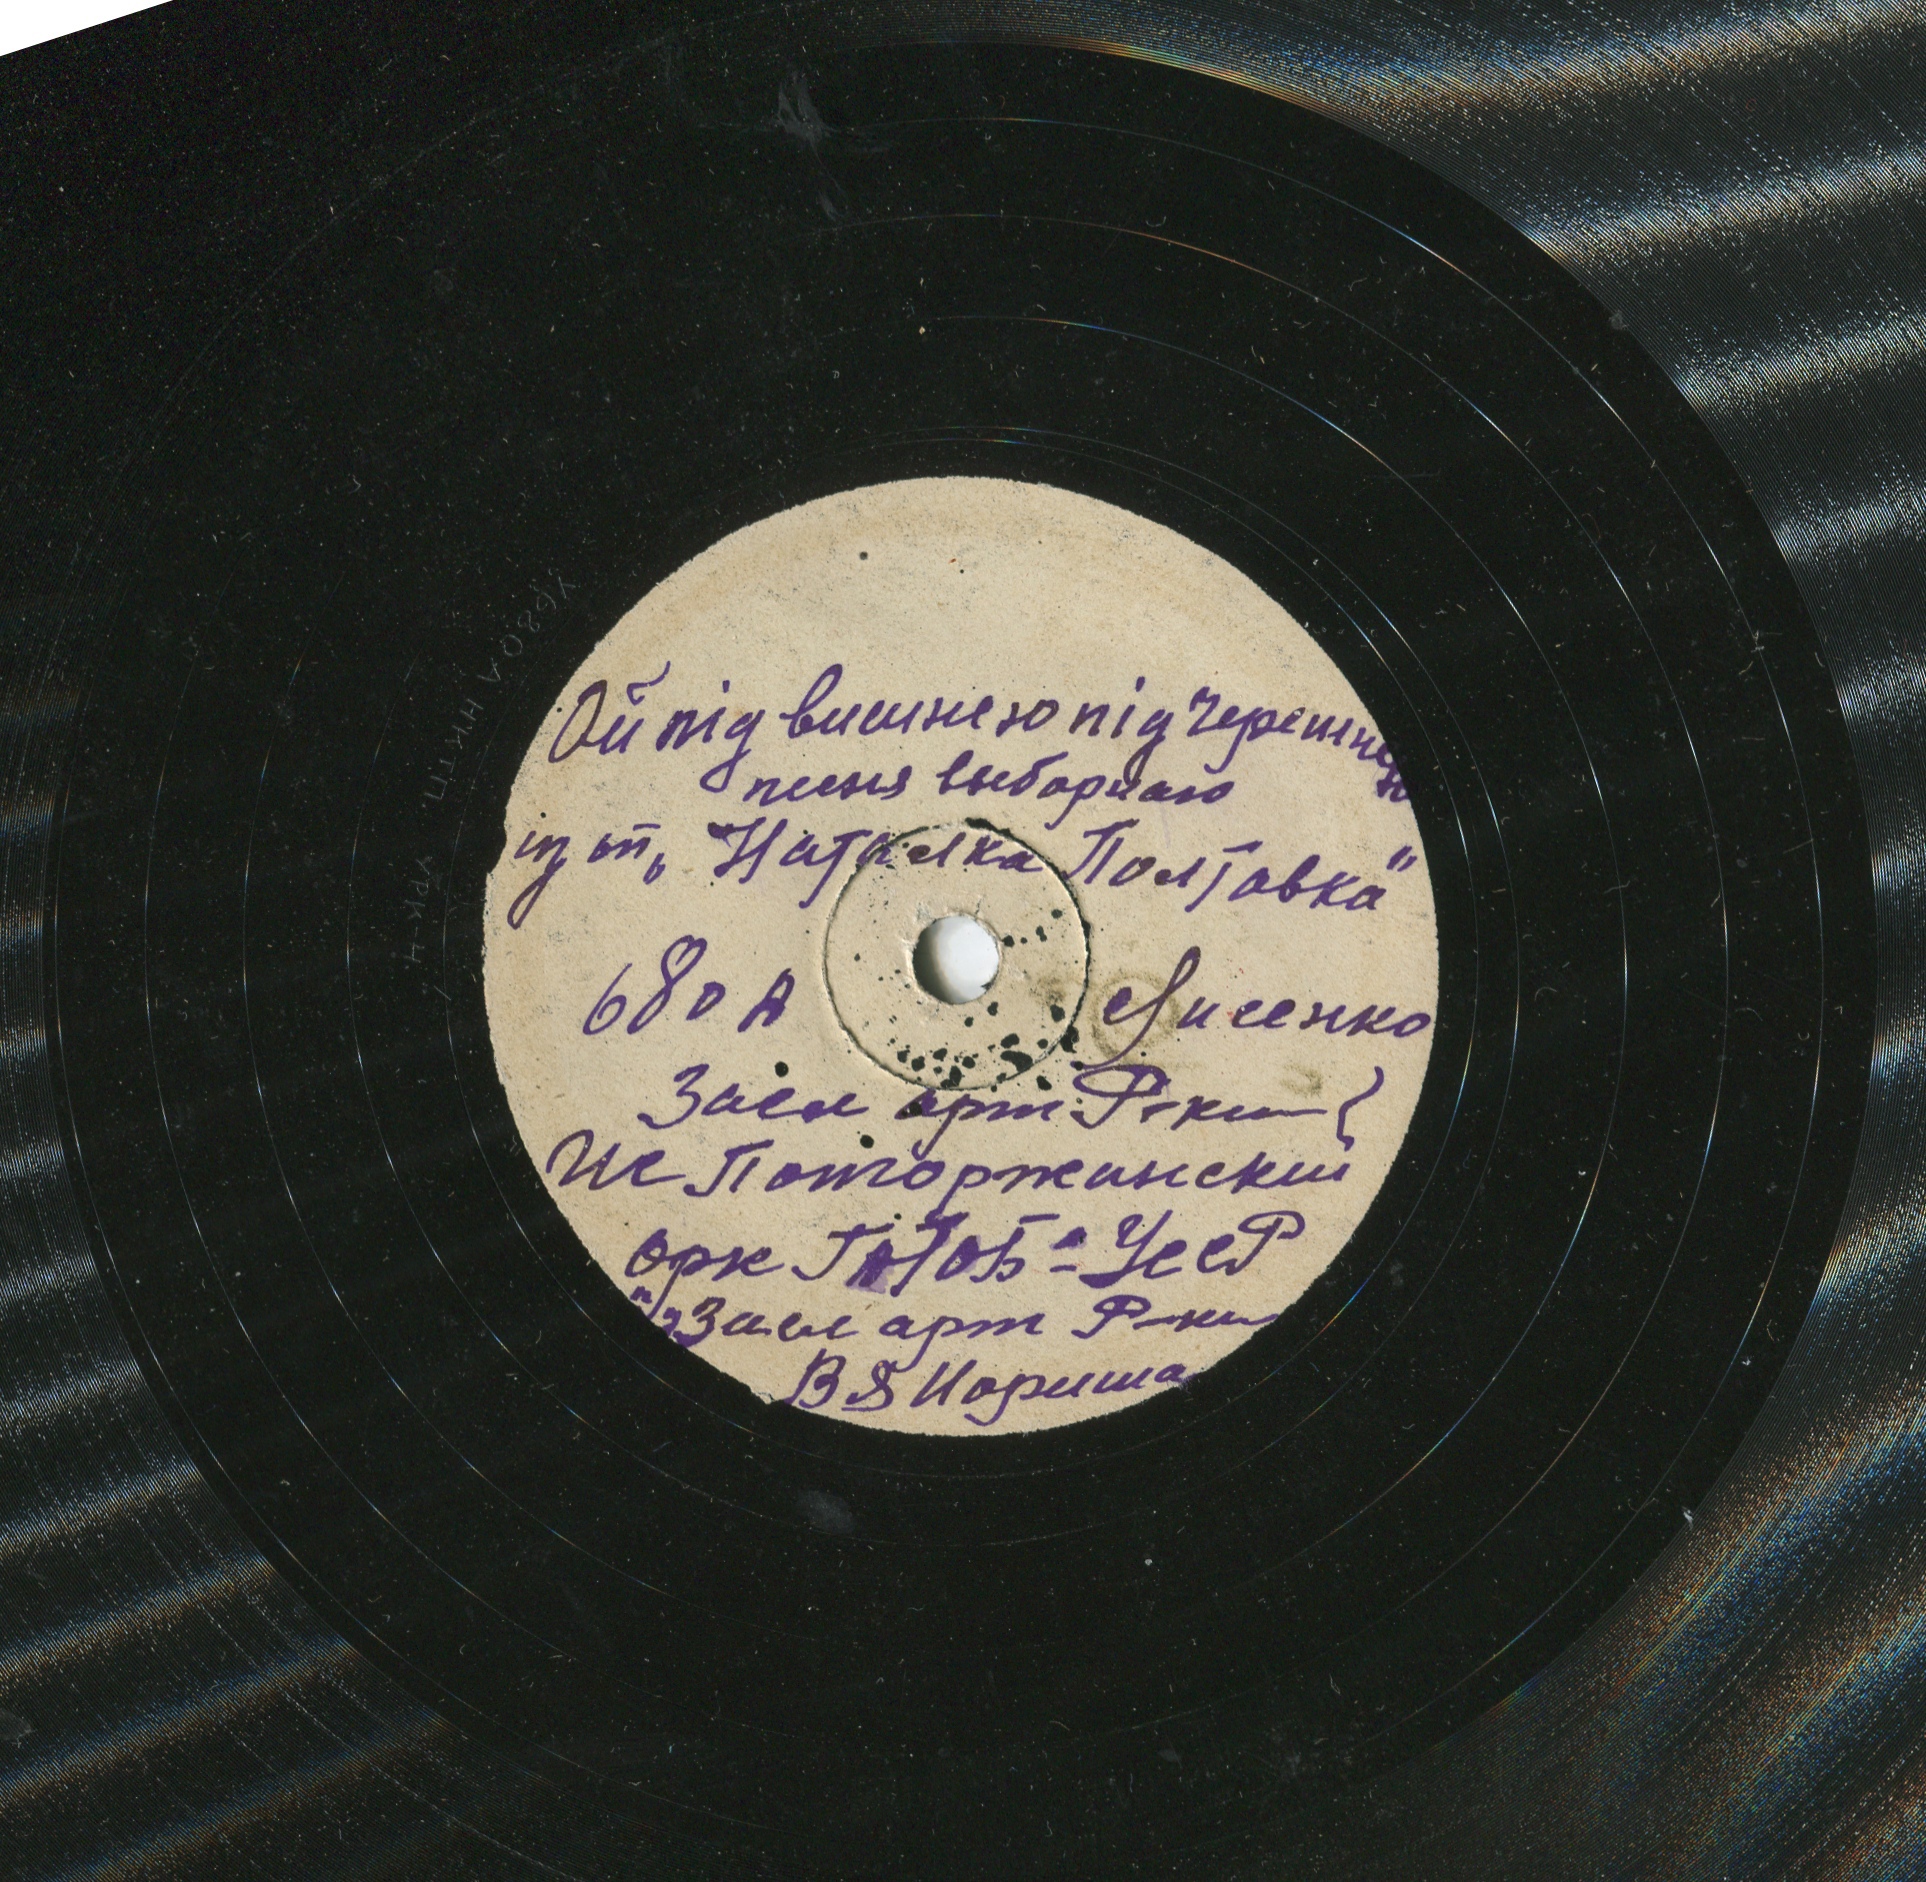 Ой під вишнею під черешнею
песня выборного
із оп. "Наталка Полтавка"
680 А Лисенко
Засл арт Р-ки
ИС Паторжинский
орк ГАТОБ-а УССР
Засл арт Р-ки
ВЯ Иориша
У680А НКТП
УРК-4